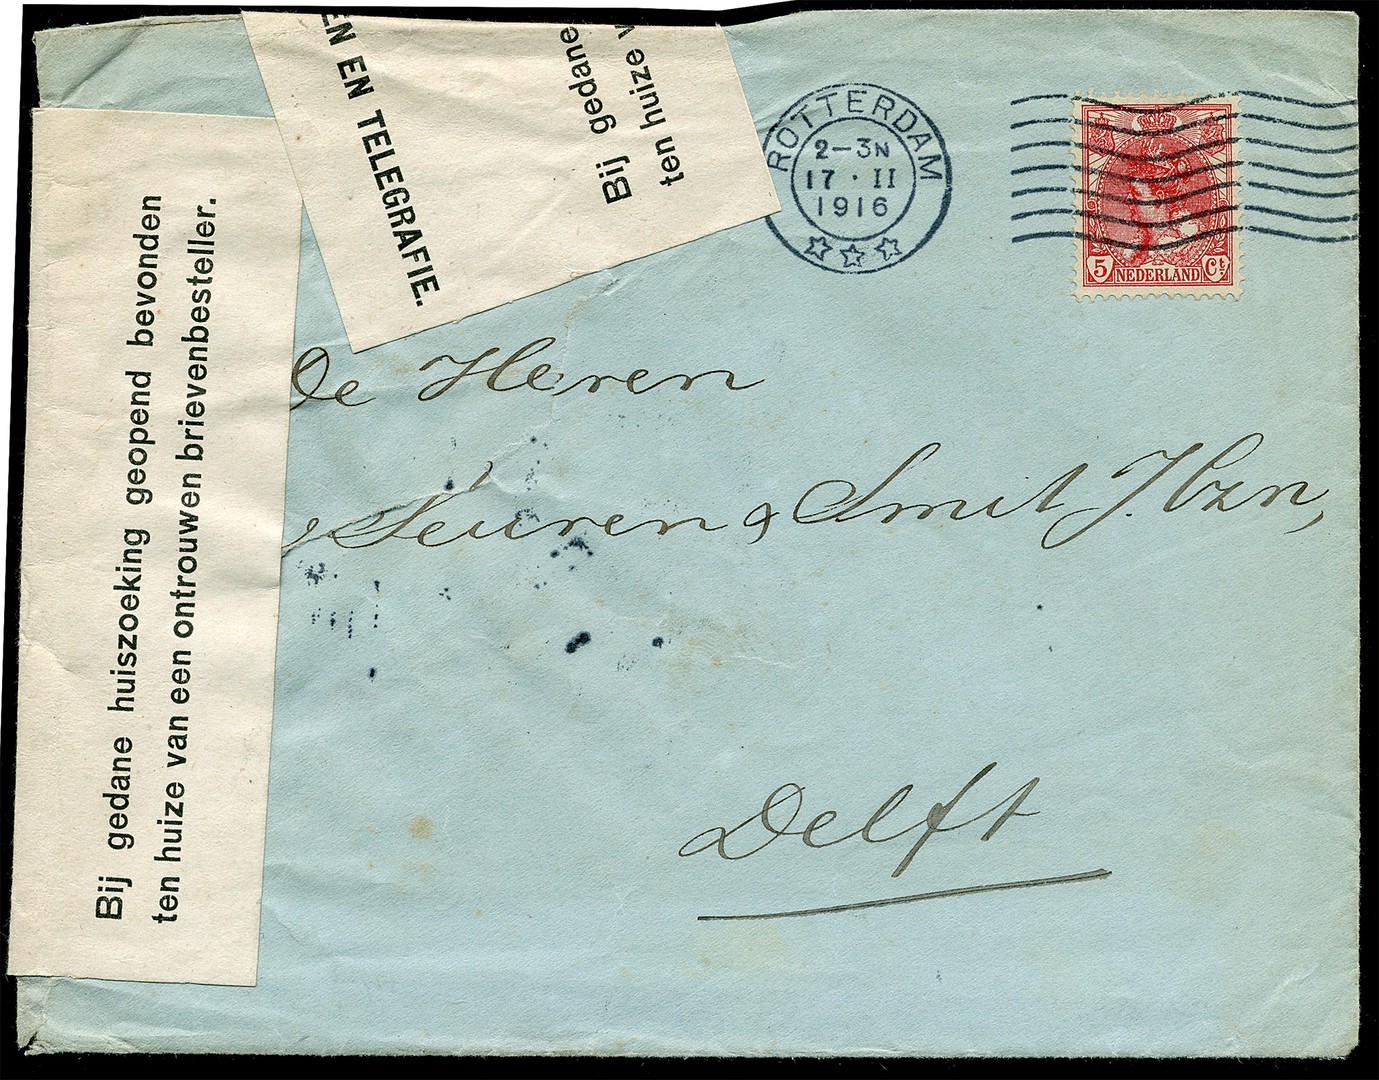 Bij gedane huiszoeking geopend bevonden
ten huize van een ontrouwen brievenbesteller.
EN EN TELEGRAFIE.
Bij gedane
ten huize
ROTTERDAM
2-3N
17 · II
1916
5 NEDERLAND Ct
De Heren
& Smit J.Hzn,
Delft